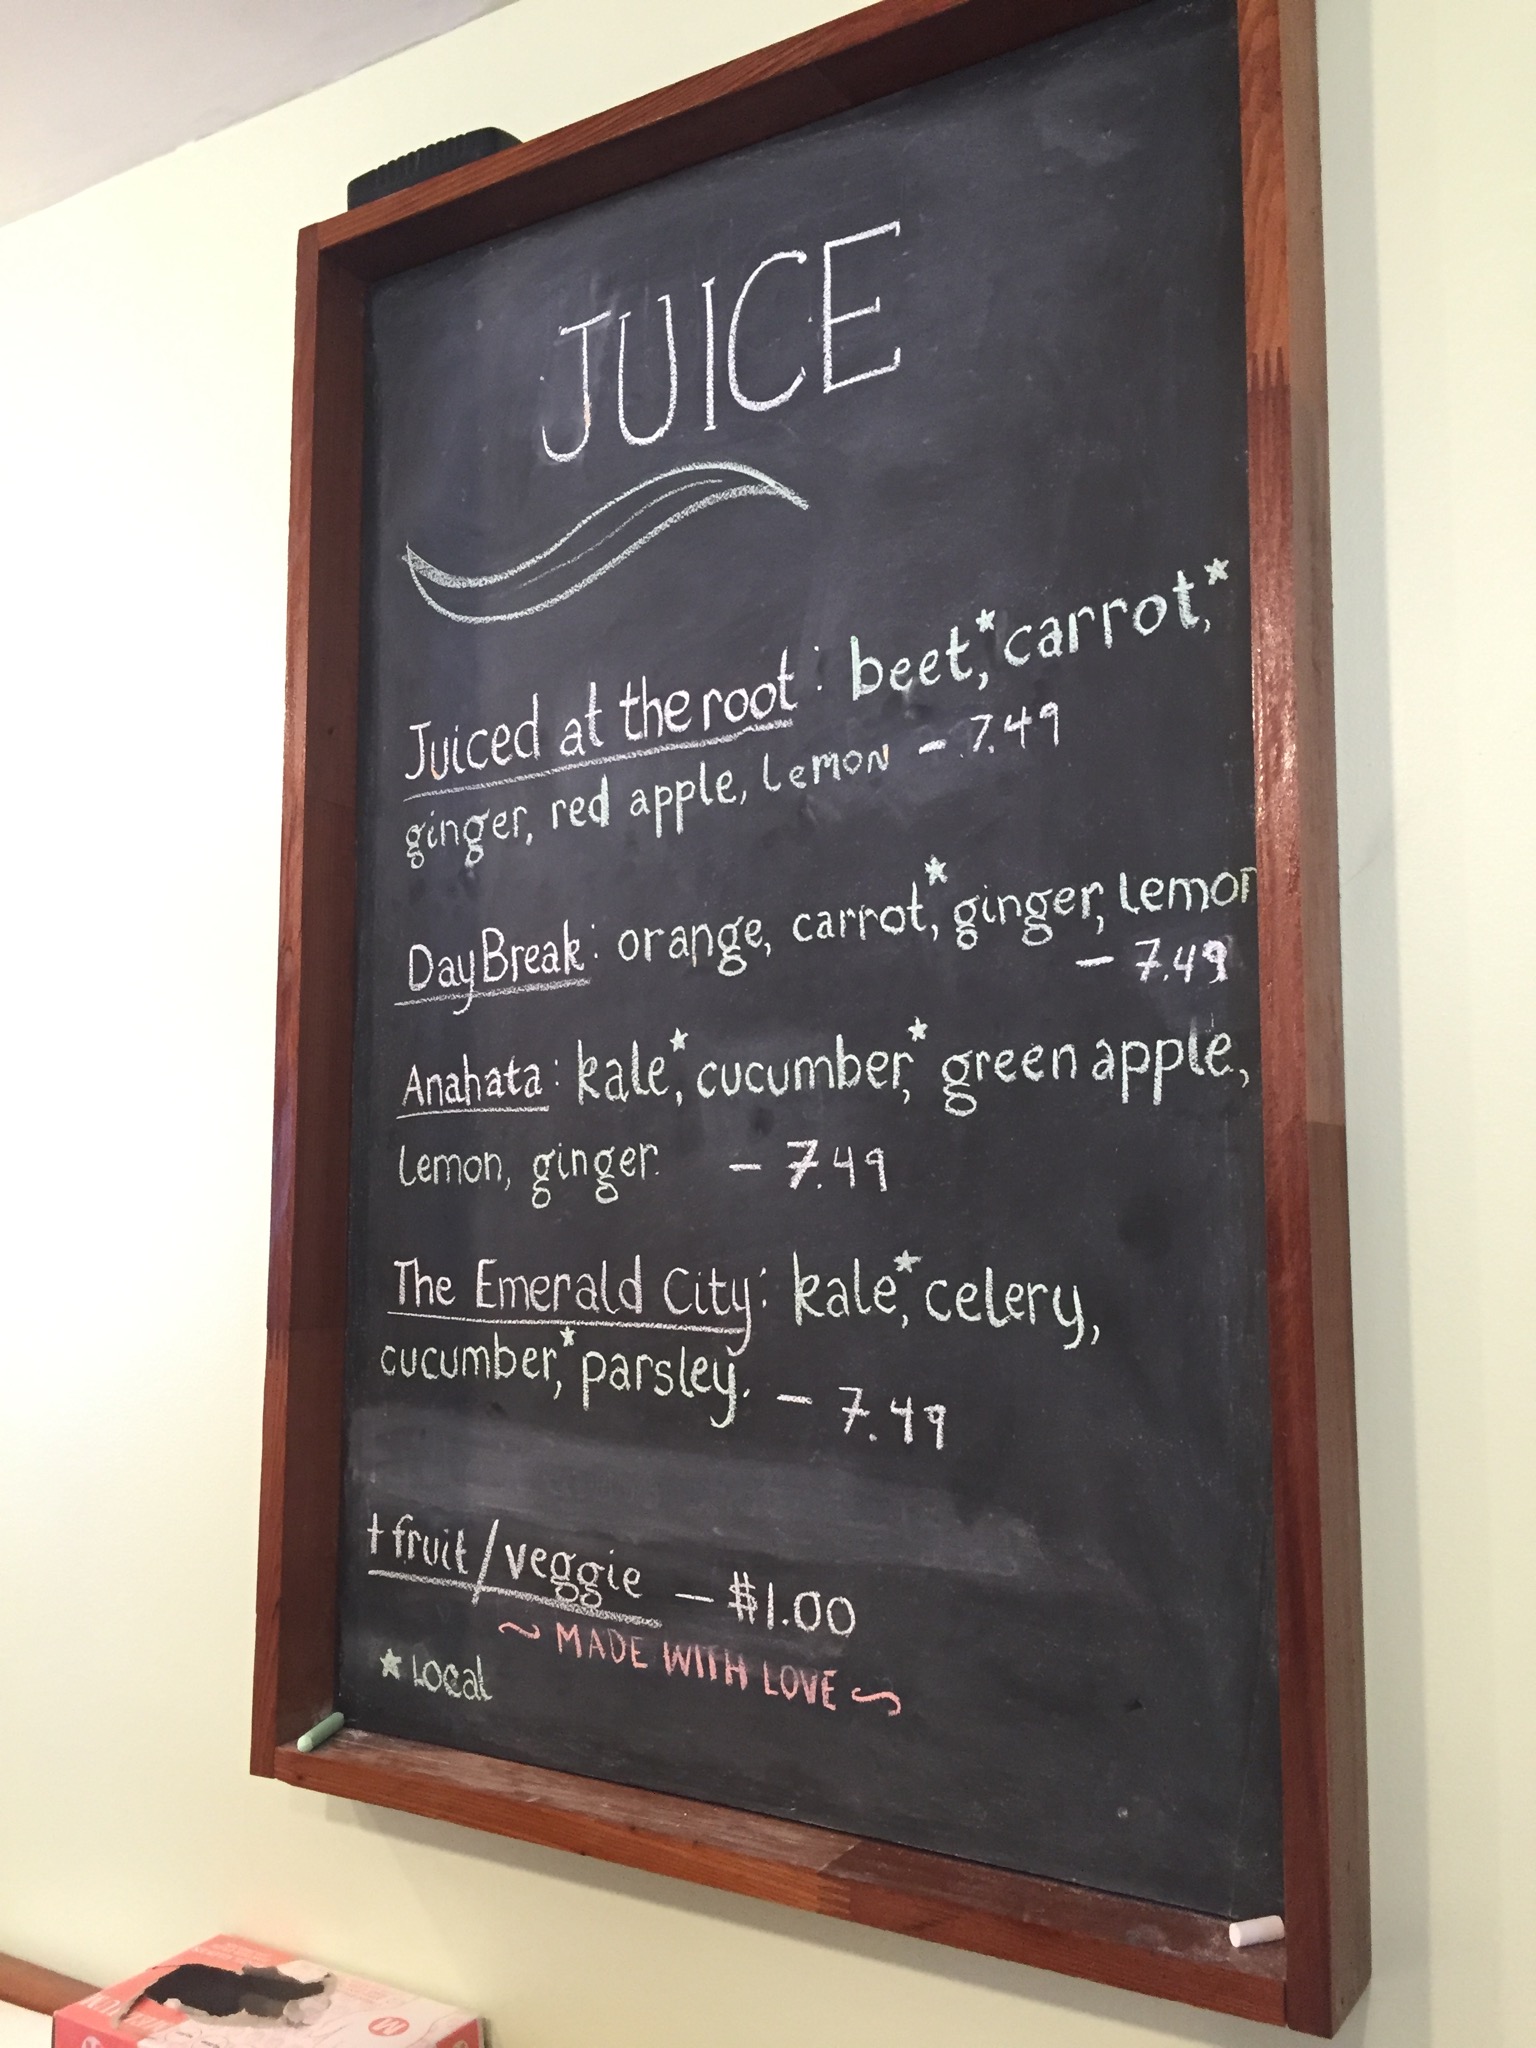 JUICE
Juiced at the root: beet,* carrot,*
ginger, red apple, lemon - 7.49
DayBreak: orange, carrot,* ginger, lemon
- 7.49
Anahata: kale,* cucumber,* green apple,
lemon, ginger. - 7.49
The Emerald City: kale,* celery,
cucumber,* parsley. - 7.49
+ fruit/veggie - $1.00
~ MADE WITH LOVE ~
* Local